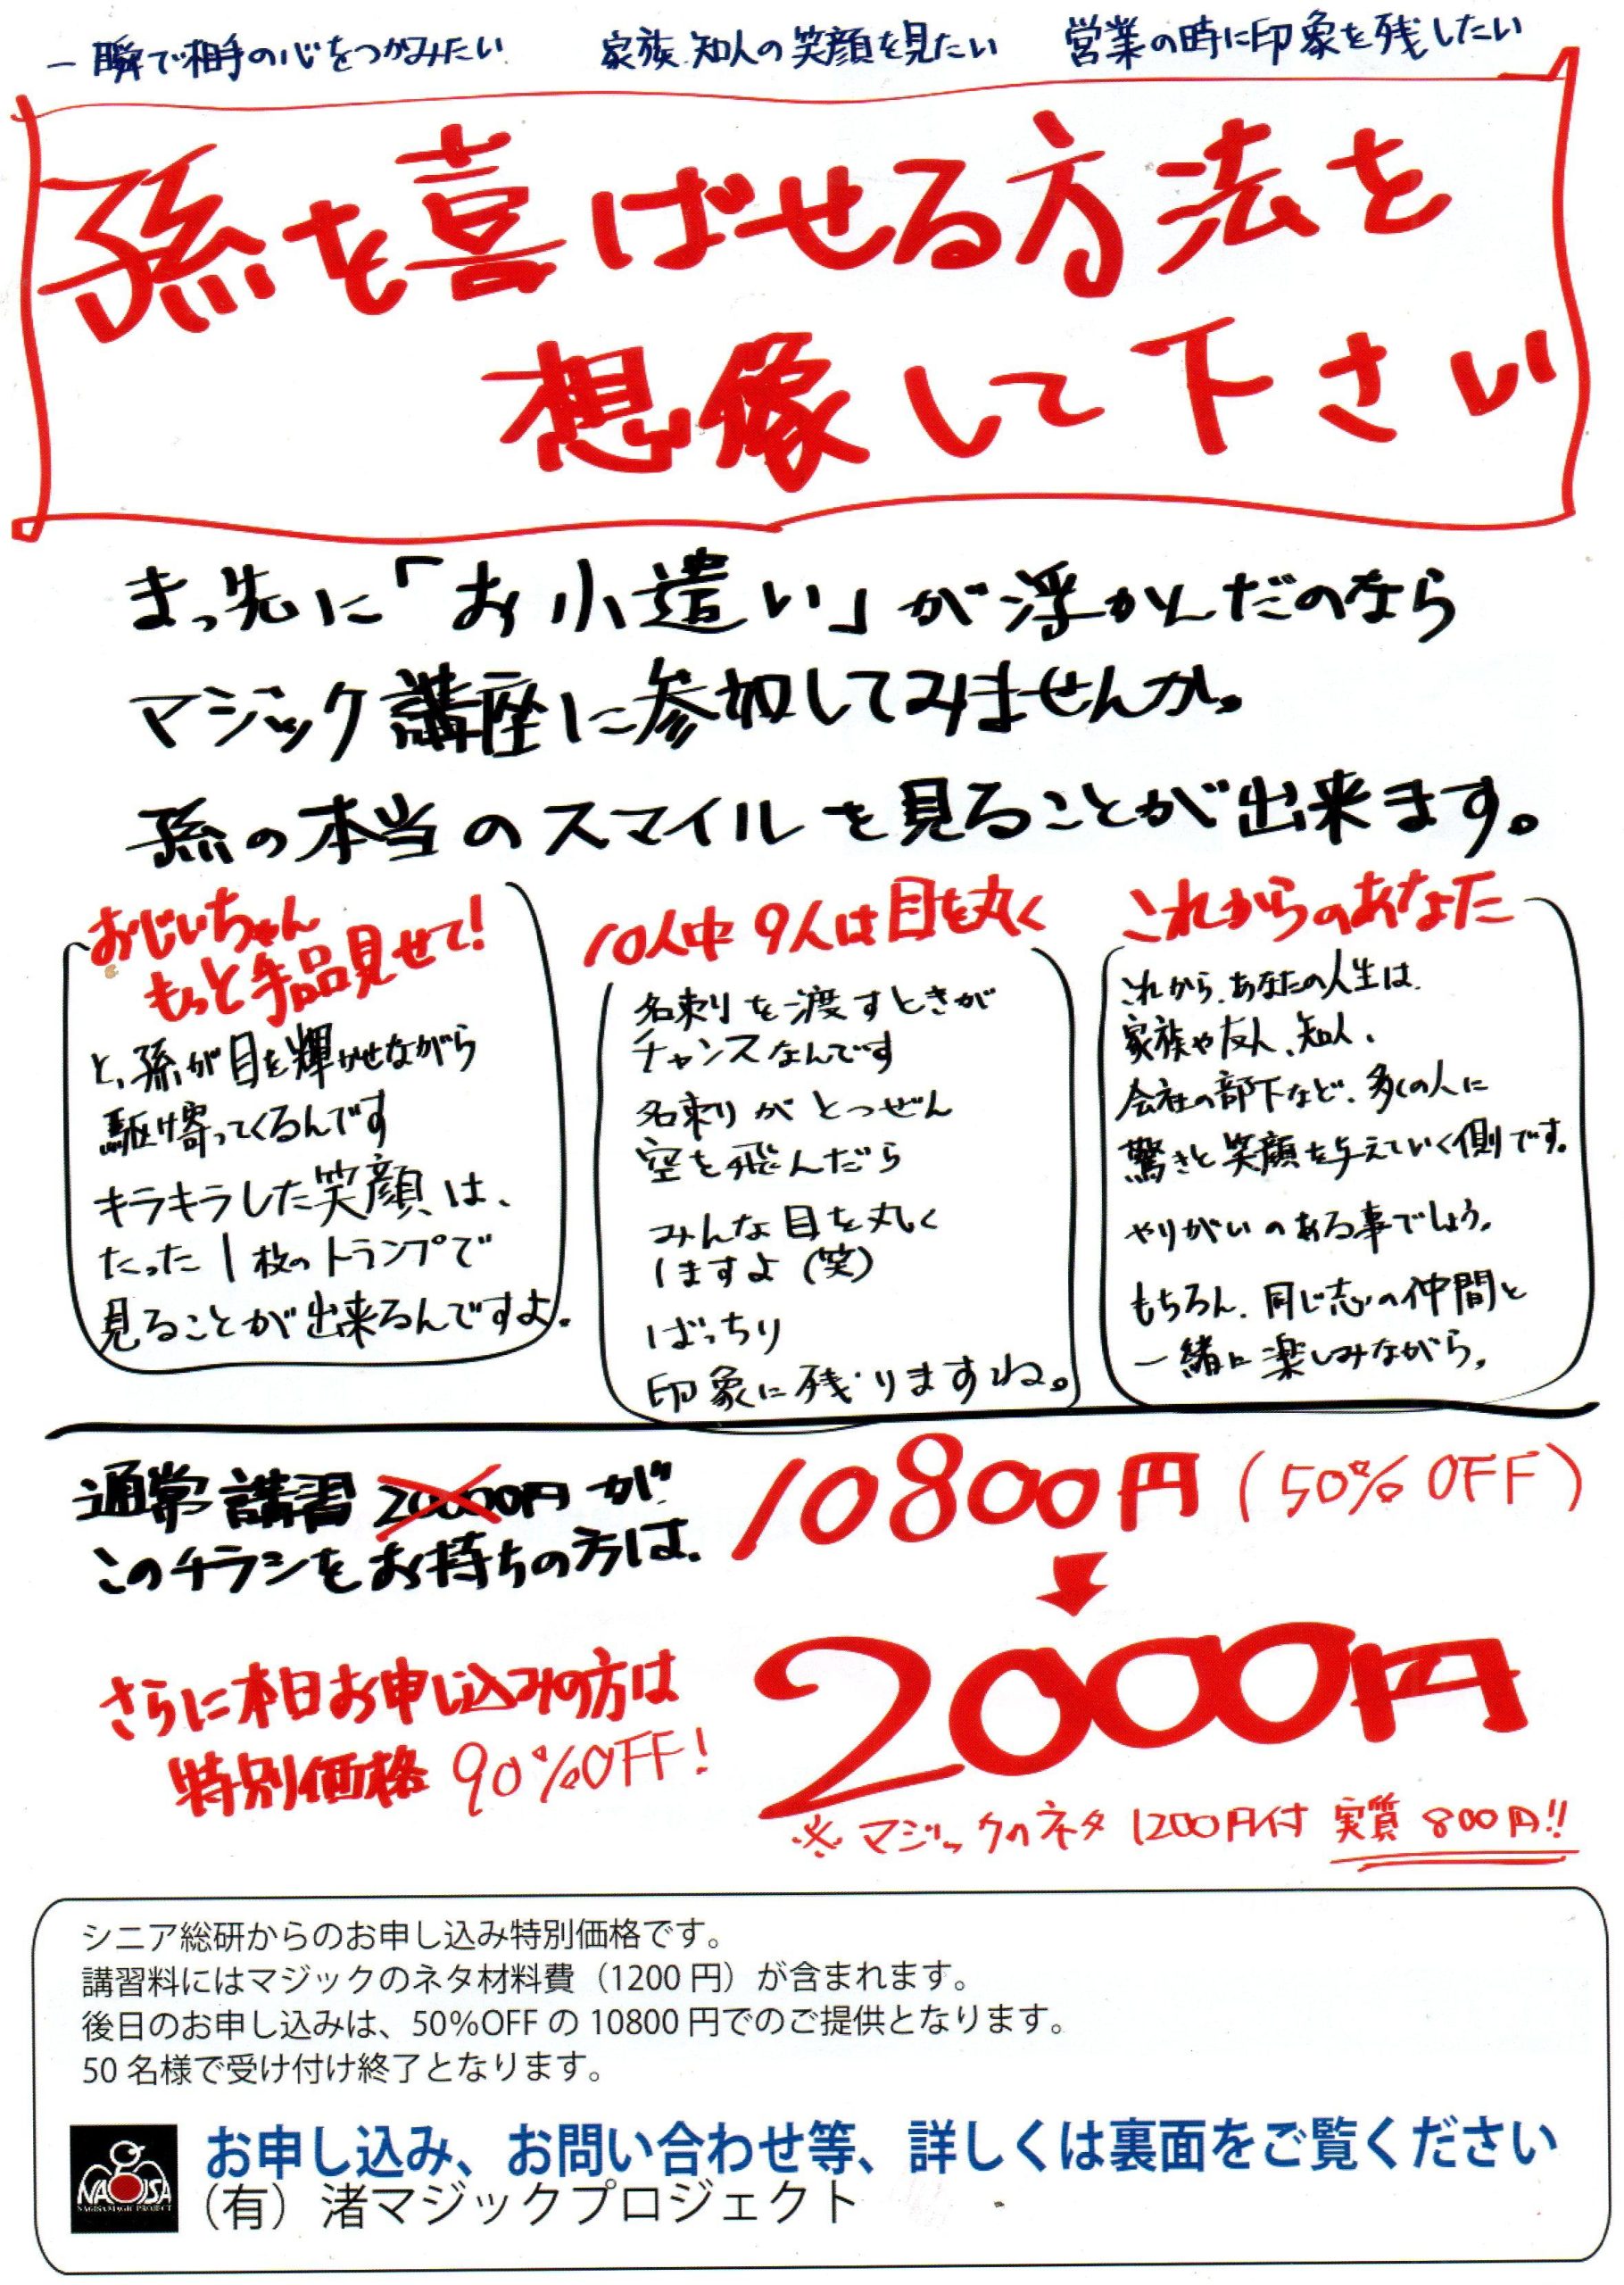 一瞬で相手の心をつかみたい 家族、知人の笑顔を見たい 営業の時に印象を残したい
孫を喜ばせる方法を
想像して下さい
まっ先に「お小遣い」が浮かんだのなら
マジック講座に参加してみませんか。
孫の本当のスマイルを見ることが出来ます。
おじいちゃん
もっと手品見せて!
と、孫が目を輝かせながら
駆け寄ってくるんです
キラキラした笑顔は、
たった1枚のトランプで
見ることが出来るんですよ。
10人中9人は目を丸く
名刺を渡すときが
チャンスなんです
名刺がとつぜん
空を飛んだら
みんな目を丸く
しますよ(笑)
ばっちり
印象に残りますね。
これからのあなた
これから、あなたの人生は、
家族や友人、知人、
会社の部下など、多くの人に
驚きと笑顔を与えていく側です。
やりがいのある事でしょう。
もちろん、同じ志の仲間と
一緒に楽しみながら。
通常講習 20000円が
このチラシをお持ちの方は、
10800円(50%OFF)
さらに本日お申し込みの方は
特別価格 90%OFF!
2000円
※マジックのネタ1200円付 実質800円!!
シニア総研からのお申し込み特別価格です。
講習料にはマジックのネタ材料費(1200円)が含まれます。
後日のお申し込みは、50%OFFの10800円でのご提供となります。
50名様で受け付け終了となります。
お申し込み、お問い合わせ等、詳しくは裏面をご覧ください
(有)渚マジックプロジェクト
NAGISA
NAGISA MAGIC PROJECT